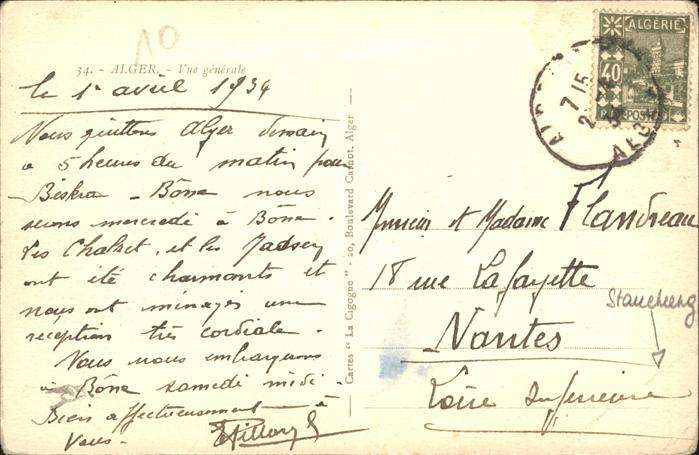 10
34. - ALGER. - Vue générale
le 1er avril 1934
Nous quittons Alger demain
à 5 heures du matin pour
Biskra - Bône nous
serons mercredi à Bône.
Les Chalset, et les
ont été charmants et
nous ont ménagés une
réception très cordiale.
Nous nous embarquons
à Bône samedi midi
Bien affectueusement à
Vous -
Cartes "La Cigogne" - 20, Boulevard Carnot, Alger
ALGÉRIE
40
POSTES
7 15
2
ALGER
Monsieur et Madame Flandreau
18 rue Lafayette
Nantes
Loire Inférieure